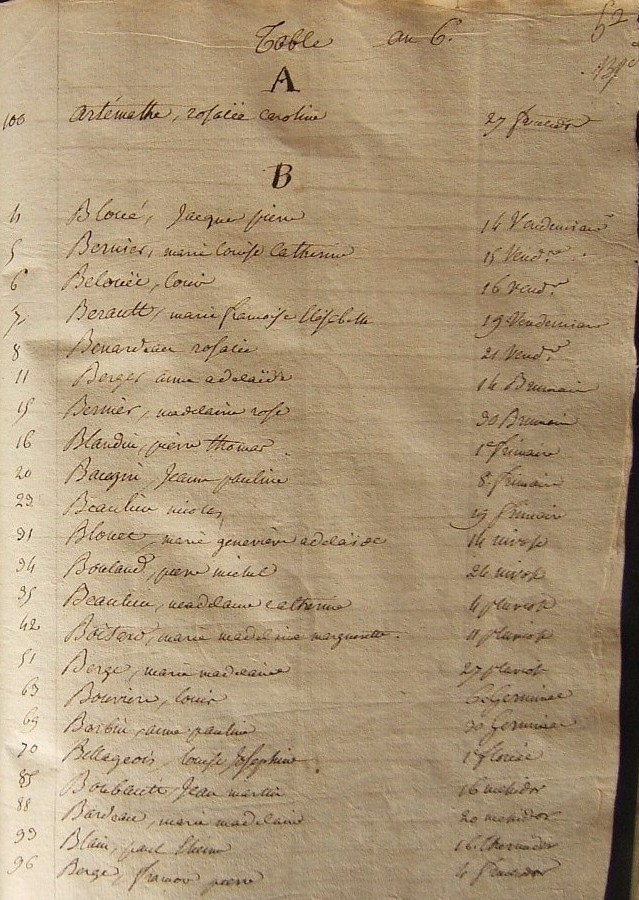 Table an 6.
52
A
100 artémethe, rosalie caroline 27 fructidor
B
4 Bloué, Jacque pierre 14 Vendemiair
5 Bernier, marie louise Catherine 15 Vend.re
6 Belouée, louis 16 Vend.re
7 Berault, marie francoise Elisabeth 19 Vendemiair
8 Benardeau rosalie 21 Vend.re
11 Berger anne adelaide 14 Brumair
15 Bernier, madelaine rose 30 Brumair
16 Blandin, pierre thomas 1er frimaire
20 Jeanne pauline 8 frimair
23 Beaulieu nicolas, 19 frimair
31 Blouet, marie geneviève adelaide 14 nivose
34 Bouland, pierre michel 24 nivose
35 Beaulieu, madelaine catherine 4 pluviose
42 marie madelaine marguerite. 11 pluviose
51 Berge, marie madelaine 27 pluviose
63 Bouviere, louis Germinal
69 Barbin, anne pauline 30 Germinal
70 Bellageois, louise Josephine 1er floréal
85 Boubault, Jean martin 16 messidor
88 Bardeau, marie madelaine 20 messidor
93 Blain, paul Etienne 16 thermidor
96 Berge, francois pierre 4 fructidor